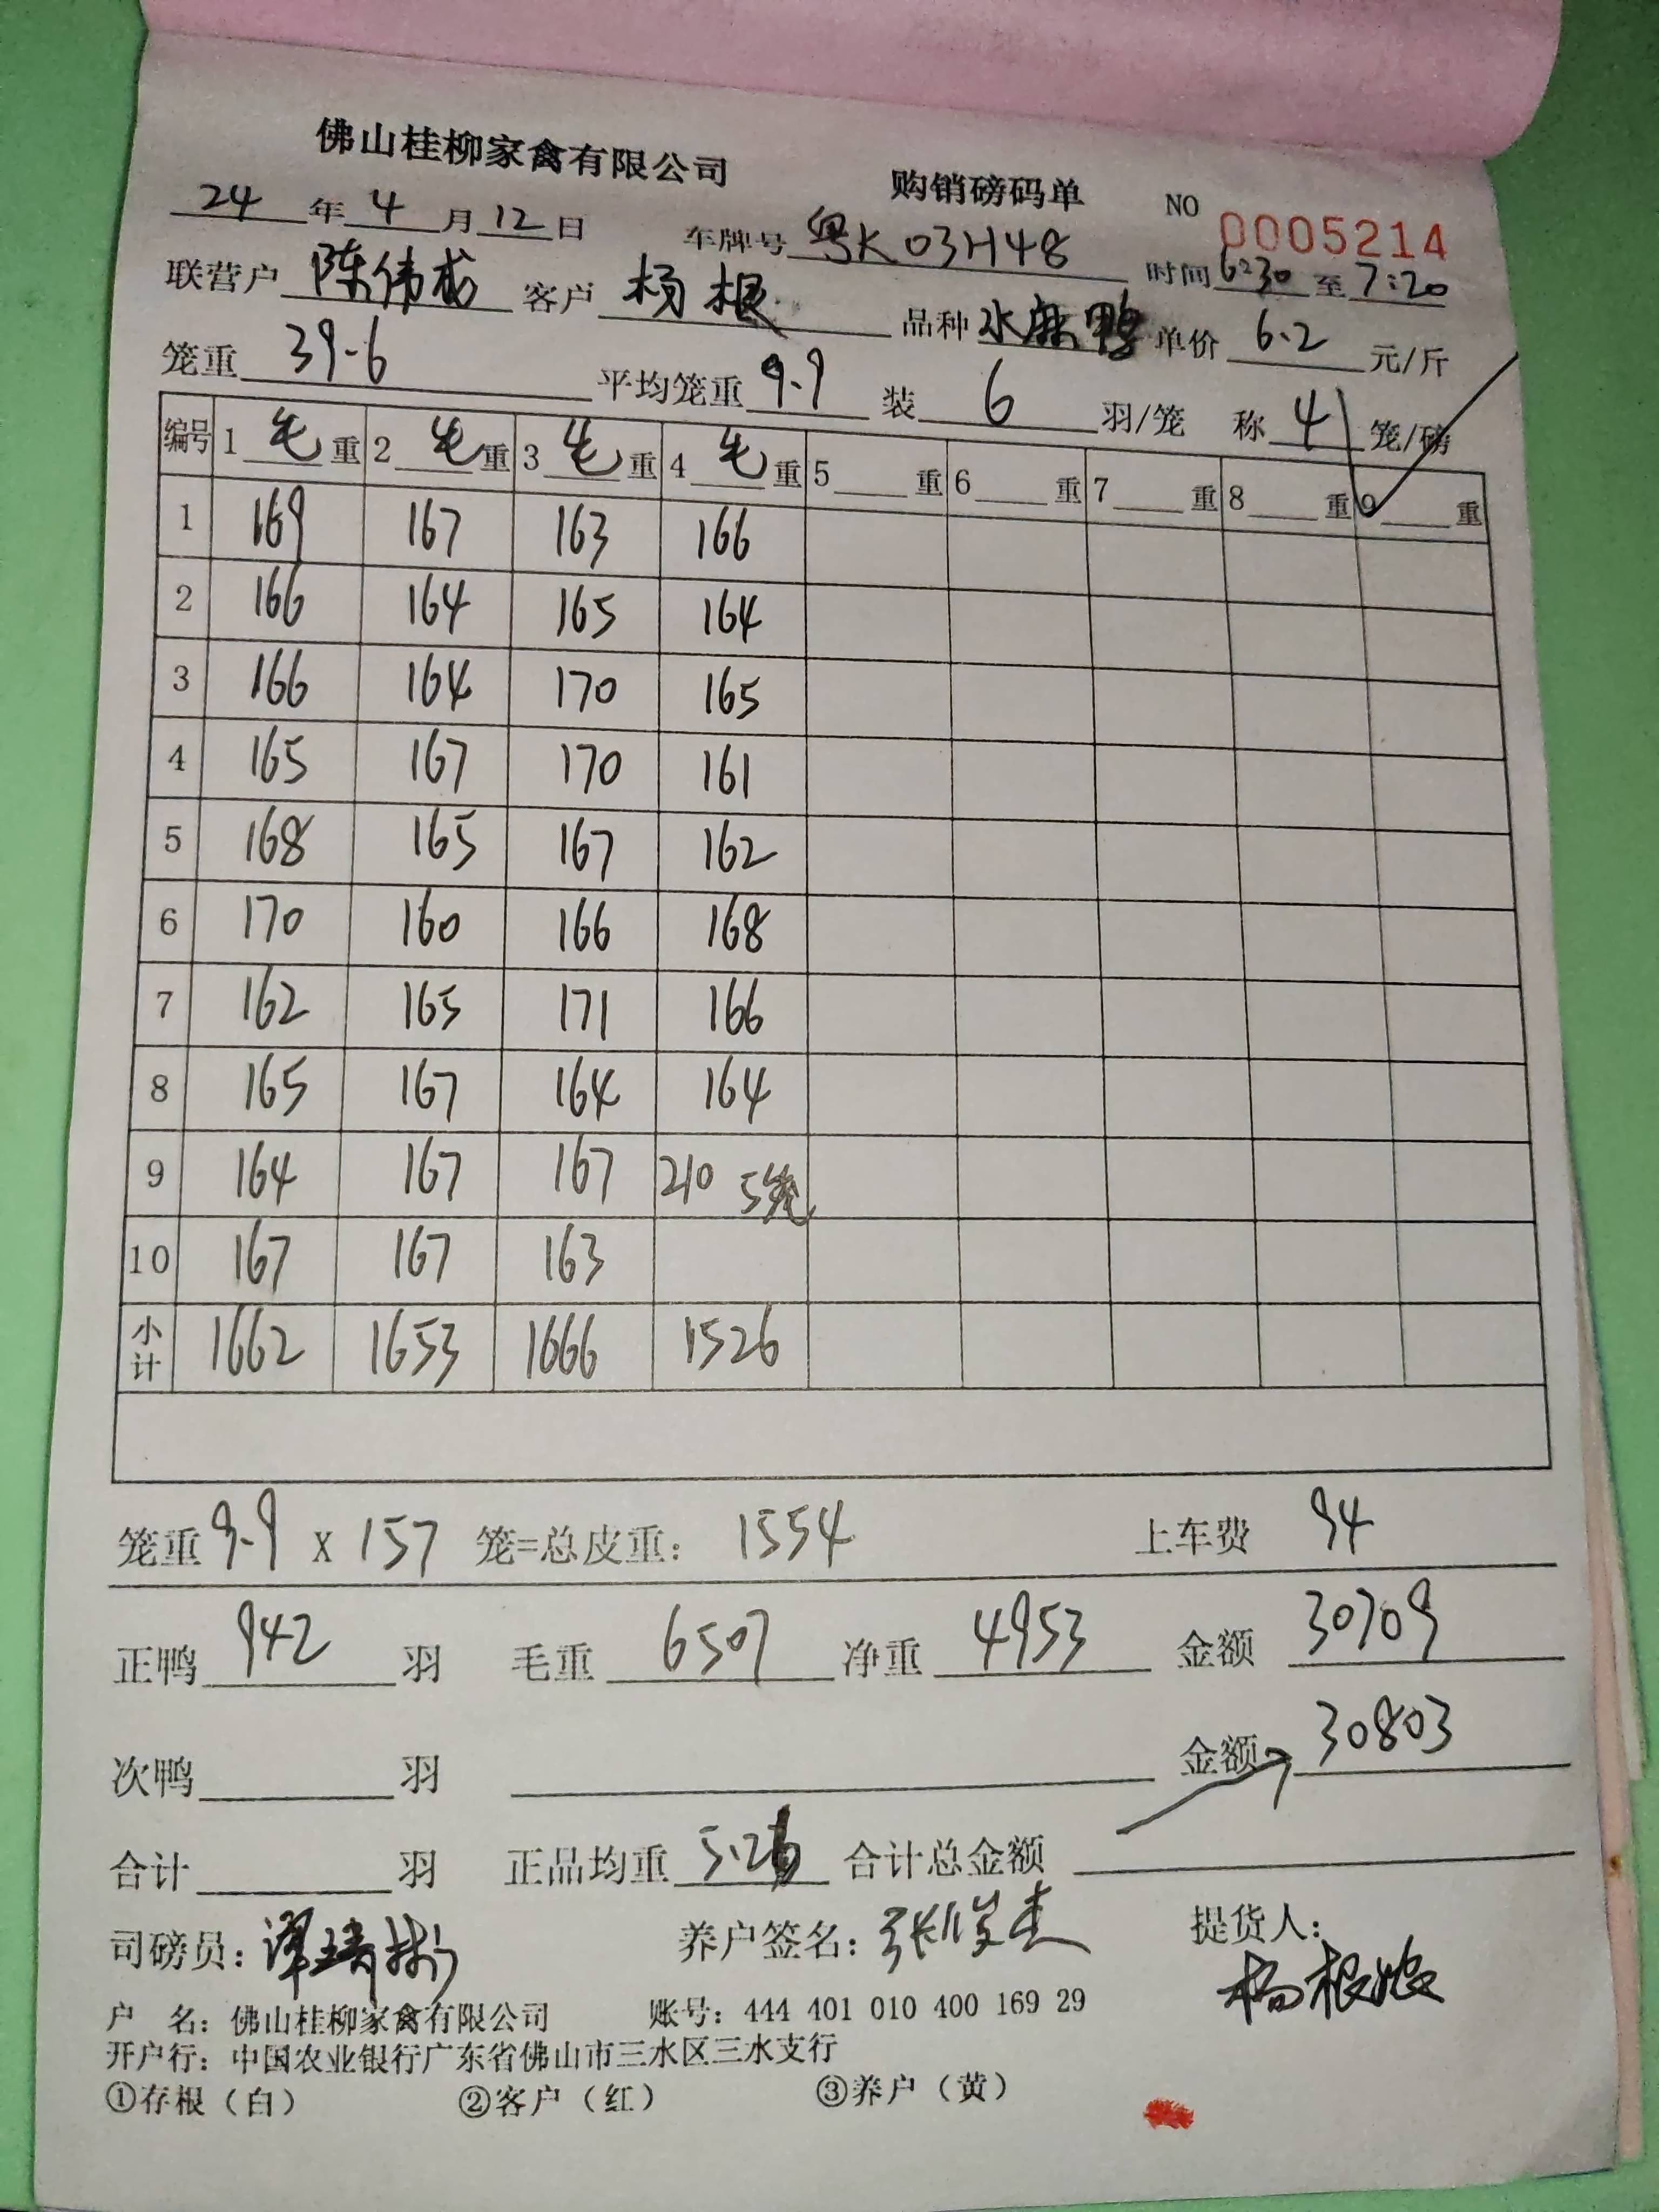 佛山桂柳家禽有限公司 购销磅码单 NO 0005214
24年4月12日 车牌号 粤K03H48 时间 6:30 至 7:20
联营户 陈伟成 客户 杨根 品种 水麻鸭 单价 6.2 元/斤
笼重 39.6 平均笼重 9.9 装 6 羽/笼 称 4 笼/磅
编号 1 毛重 2 毛重 3 毛重 4 毛重 5 重 6 重 7 重 8 重 9 重
1 169 167 163 166
2 166 164 165 164
3 166 164 170 165
4 165 167 170 161
5 168 165 167 162
6 170 160 166 168
7 162 165 171 166
8 165 167 164 164
9 164 167 167 210 5笼
10 167 167 163
小计 1662 1653 1666 1526
笼重 9.9 x 157 笼=总皮重： 1554 上车费 94
正鸭 942 羽 毛重 6507 净重 4953 金额 30709
次鸭 羽 金额 30803
合计 羽 正品均重 5.26 合计总金额
司磅员： 养户签名： 张俊杰 提货人：
杨根
户 名：佛山桂柳家禽有限公司 账号：444 401 010 400 169 29
开户行：中国农业银行广东省佛山市三水区三水支行
①存根（白） ②客户（红） ③养户（黄）